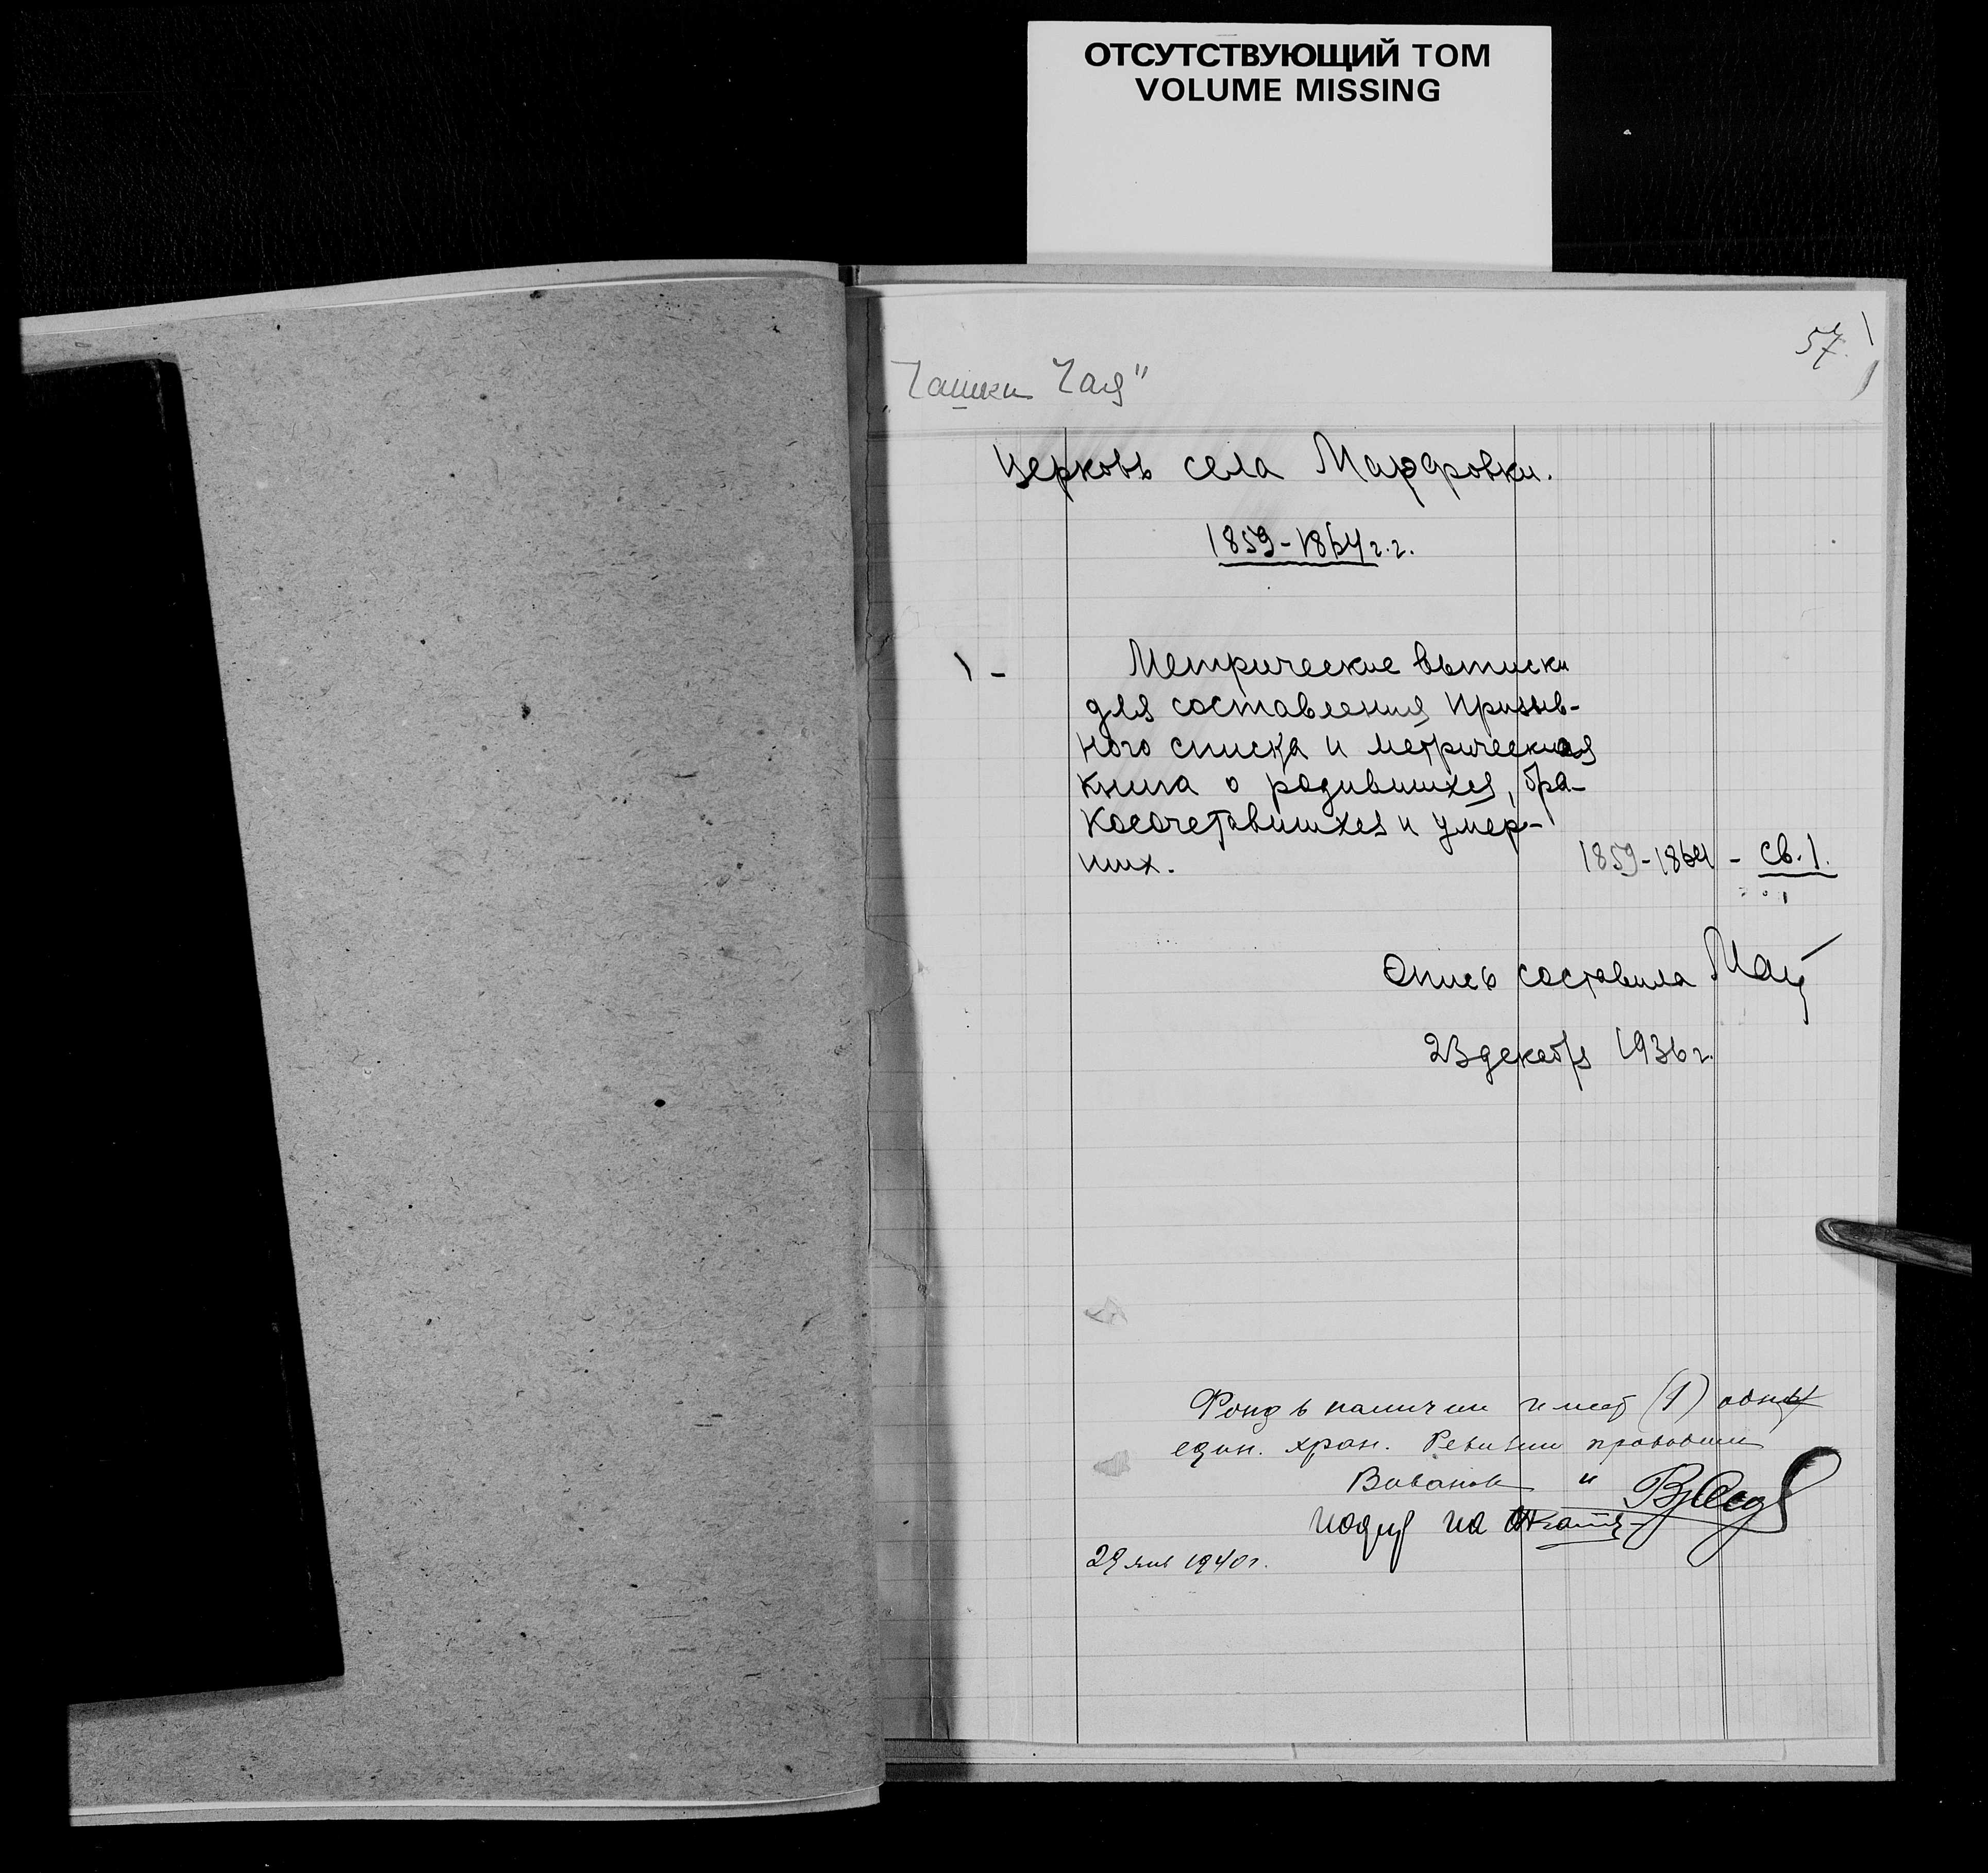 ОТСУТСТВУЮЩИЙ ТОМ
VOLUME MISSING
57.
„Чашки Чая"
Церковь села Марфовки.
1859-1864 г.г.
1 -
Метрические выписки
для составления призыв-
ного списка и метрическая
книга о родившихся, бра-
косочетавшихся и умер-
ших.
1859-1864 - св. 1.
Опись составила
23 декабря 1936 г.
Фонд в наличии имеет (1) одну
един. хран. Ревизию проводили
и
29 янв 1940 г.